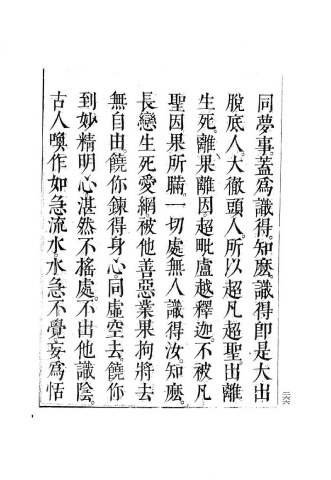 同夢事蓋爲識得。知麽。識得卽是大出
脫底人。大徹頭人。所以超凡超聖。出離
生死。離果離因。超毗盧越釋迦。不被凡
聖因果所瞞。一切處無人識得汝。知麽。
長戀生死愛網。被他善惡業果拘將去
無自由。饒你鍊得身心。同虛空去。饒你
到妙精明心湛然不搖處。不出他識陰。
古人喚作如急流水。水急不覺。妄爲恬
二六六